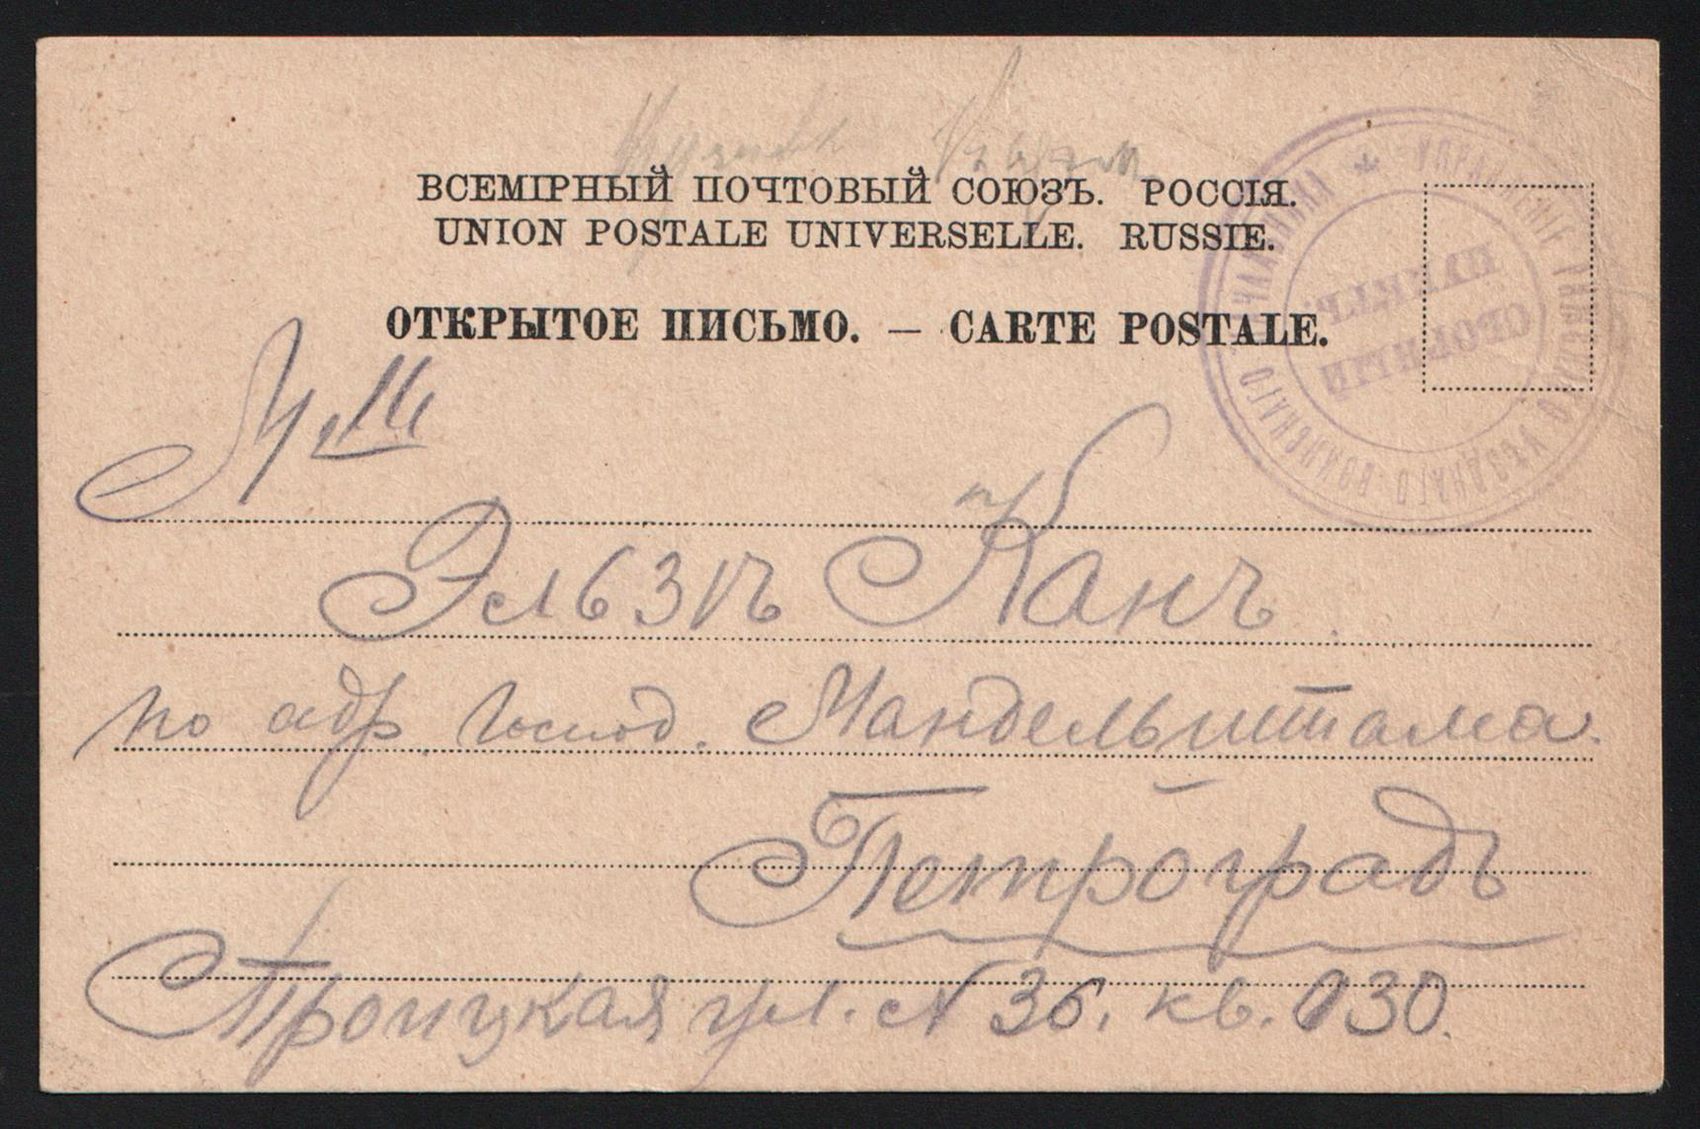 ВСЕМІРНЫЙ ПОЧТОВЫЙ СОЮЗЪ. РОССІЯ.
UNION POSTALE UNIVERSELLE. RUSSIE.
ОТКРЫТОЕ ПИСЬМО. — CARTE POSTALE.
УПРАВЛЕНІЕ УѢЗДНАГО ВОИНСКАГО НАЧАЛЬНИКА
СБОРНЫЙ ПУНКТЪ.
Канъ
по адр. Господ. Мандельштама.
Петроградъ
Троицкая ул. № 36. кв. 30.